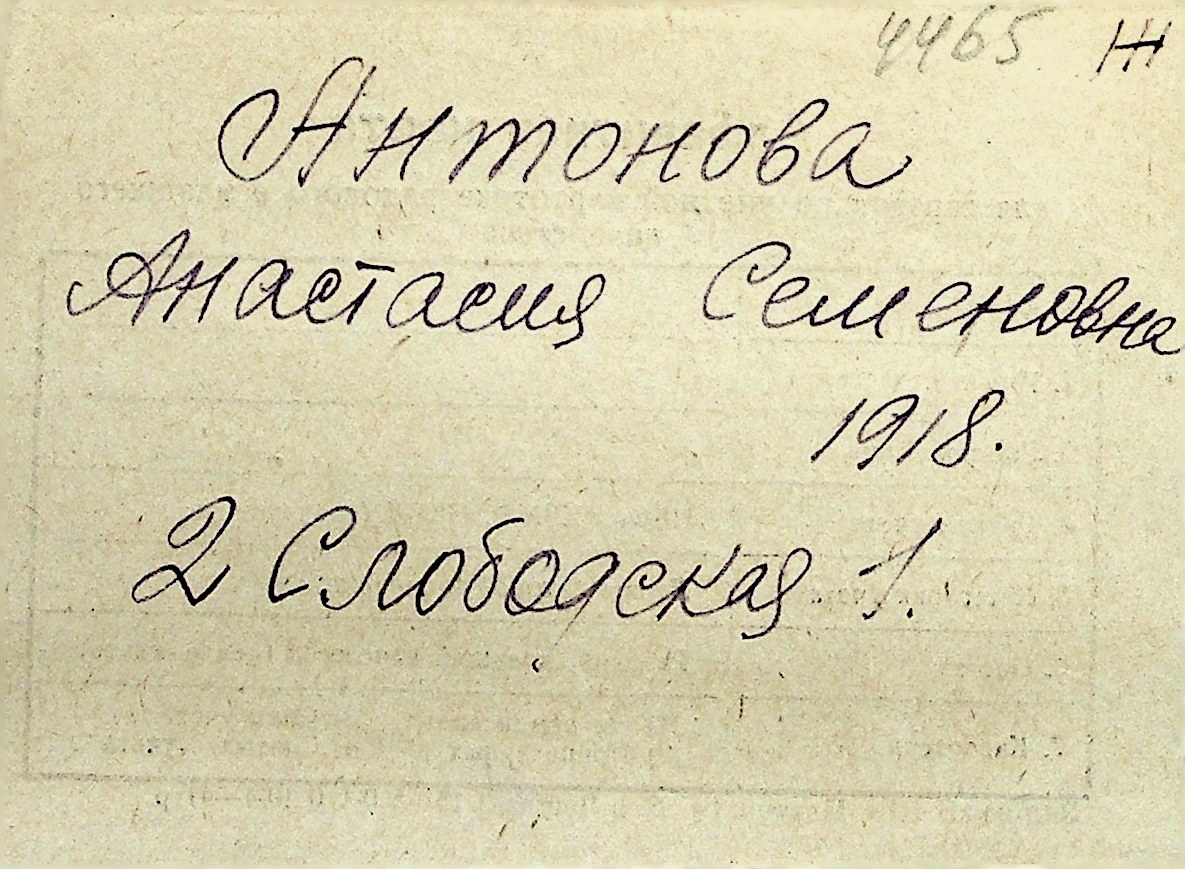 4465 Ж
Антонова
Анастасия Семеновна
1918.
2 Слободская 1.